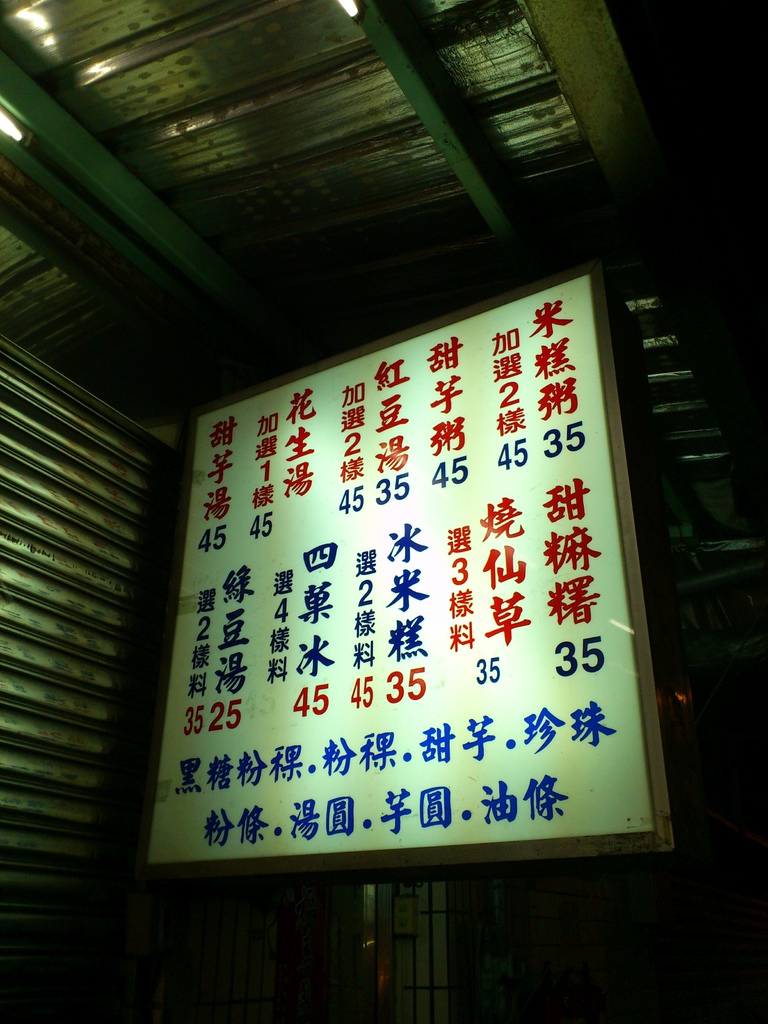 米糕粥 35
加選2樣 45
甜芋粥 45
紅豆湯 35
加選2樣 45
花生湯
加選1樣 45
甜芋湯 45
甜麻糬 35
燒仙草
選3樣料 35
冰米糕 35
選2樣料 45
四菓冰 45
選4樣料
綠豆湯 25
選2樣料 35
黑糖粉粿.粉粿.甜芋.珍珠
粉條.湯圓.芋圓.油條